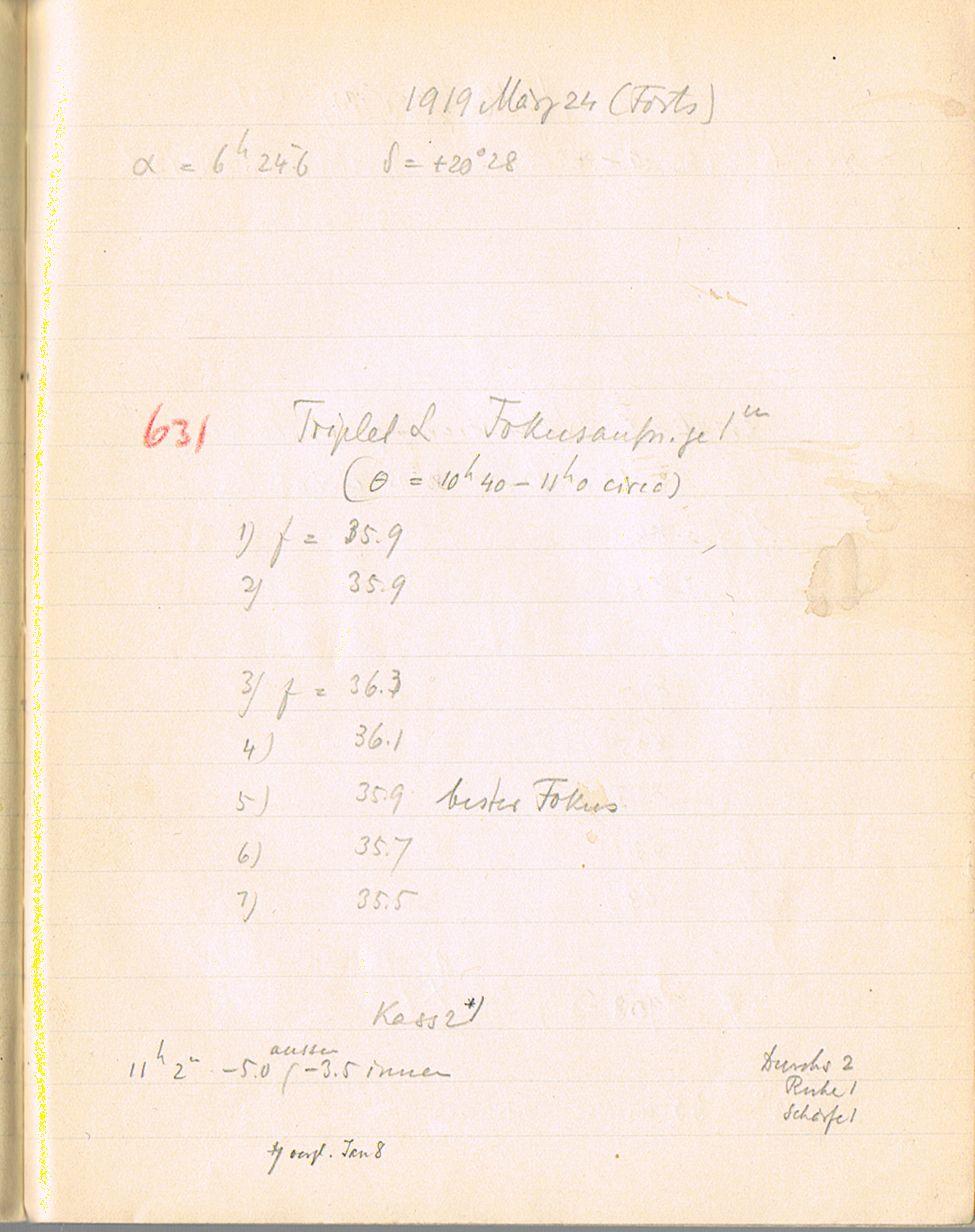 1919 März 24 (Forts)
α = 6ʰ 24.6 δ = +20°28
631 Triplet L Fokusaufn. je 1ᵐ
(θ = 10ʰ40 – 11ʰ0 circa)
1) f = 35.9
2) 35.9
3) f = 36.3
4) 36.1
5) 35.9 bester Fokus
6) 35.7
7) 35.5
Kass 2*)
aussen
11ʰ 2ᵐ –5.0 –3.5 innen
Durchs 2
Ruhe 1
Schärfe 1
*) vergl. Jan 8